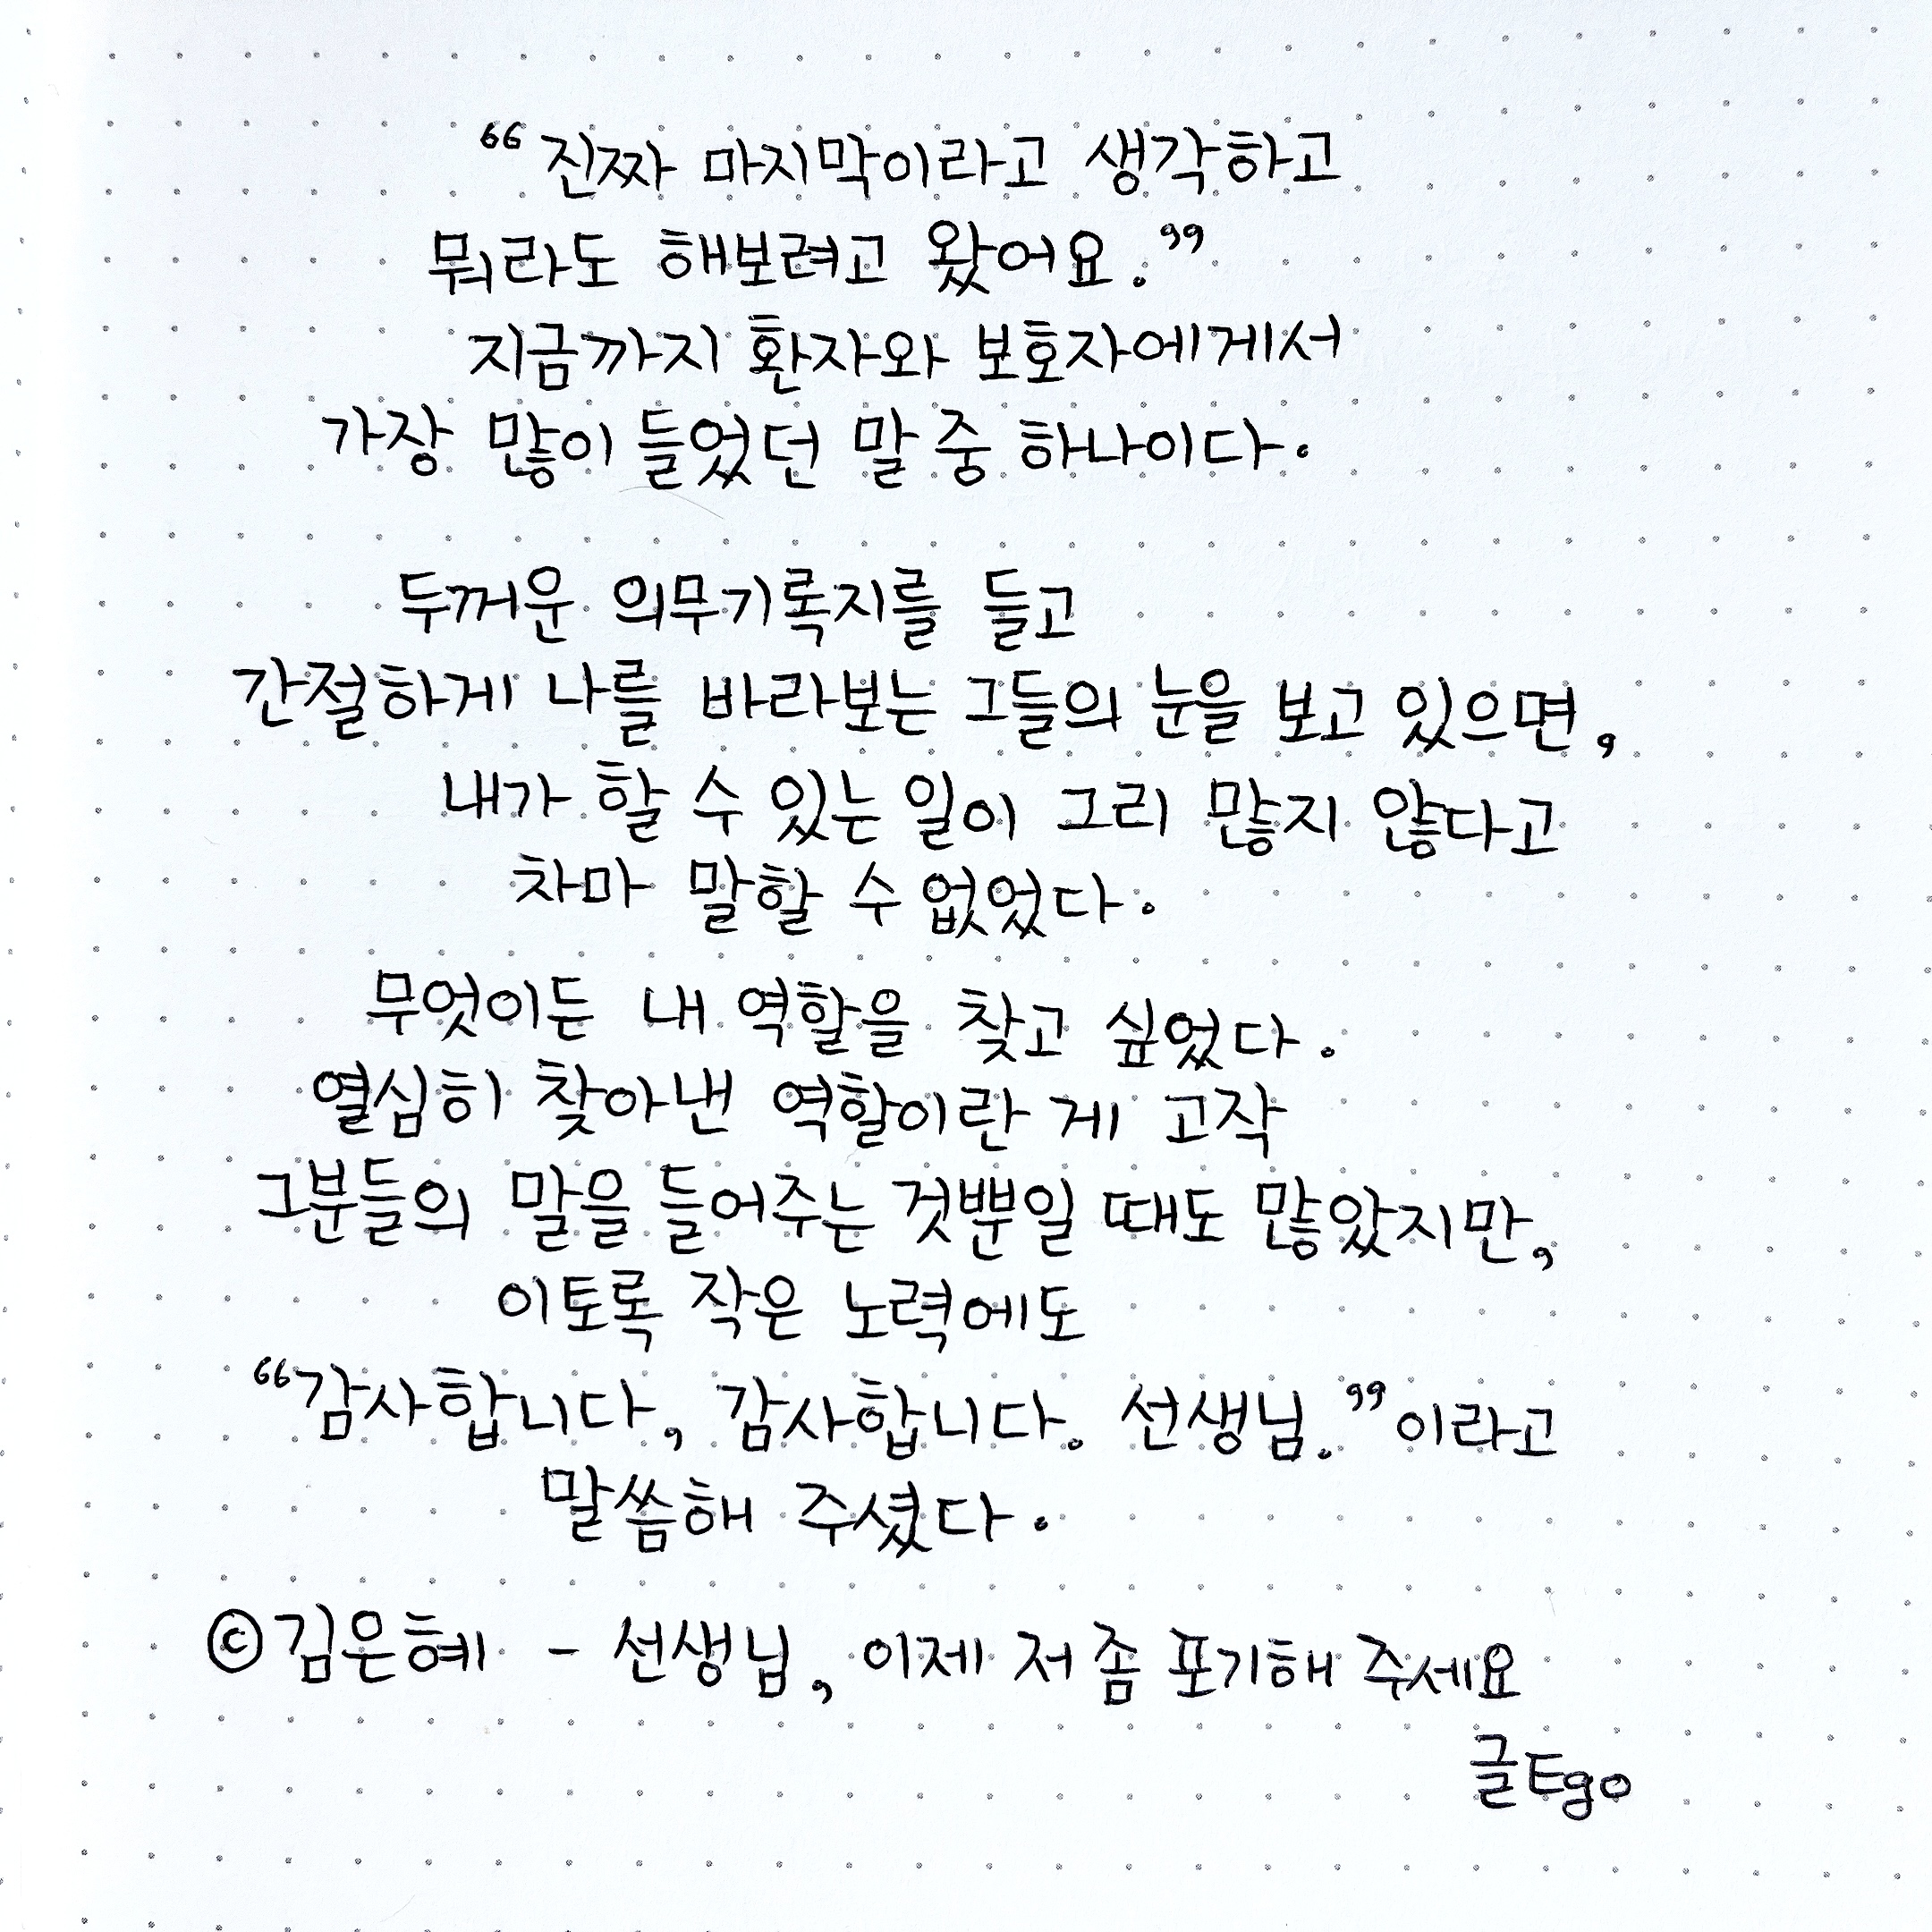 “진짜 마지막이라고 생각하고
뭐라도 해보려고 왔어요.”
지금까지 환자와 보호자에게서
가장 많이 들었던 말 중 하나이다.
두꺼운 의무기록지를 들고
간절하게 나를 바라보는 그들의 눈을 보고 있으면,
내가 할 수 있는 일이 그리 많지 않다고
차마 말할 수 없었다.
무엇이든 내 역할을 찾고 싶었다.
열심히 찾아낸 역할이란 게 고작
그분들의 말을 들어주는 것뿐일 때도 많았지만,
이토록 작은 노력에도
“감사합니다, 감사합니다. 선생님.”이라고
말씀해 주셨다.
©김은혜 - 선생님, 이제 저 좀 포기해 주세요
글Ego